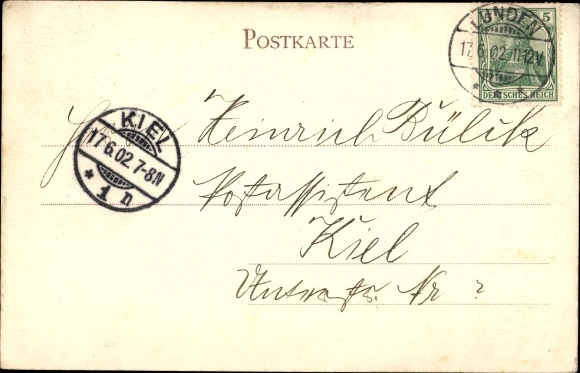 POSTKARTE
LUNDEN
17.6.02.11-12V.
5
DEUTSCHES REICH
KIEL
17.6.02.7-8N
* 1 n
Heinrich Bülik
Postassistent
Kiel
Nr ?